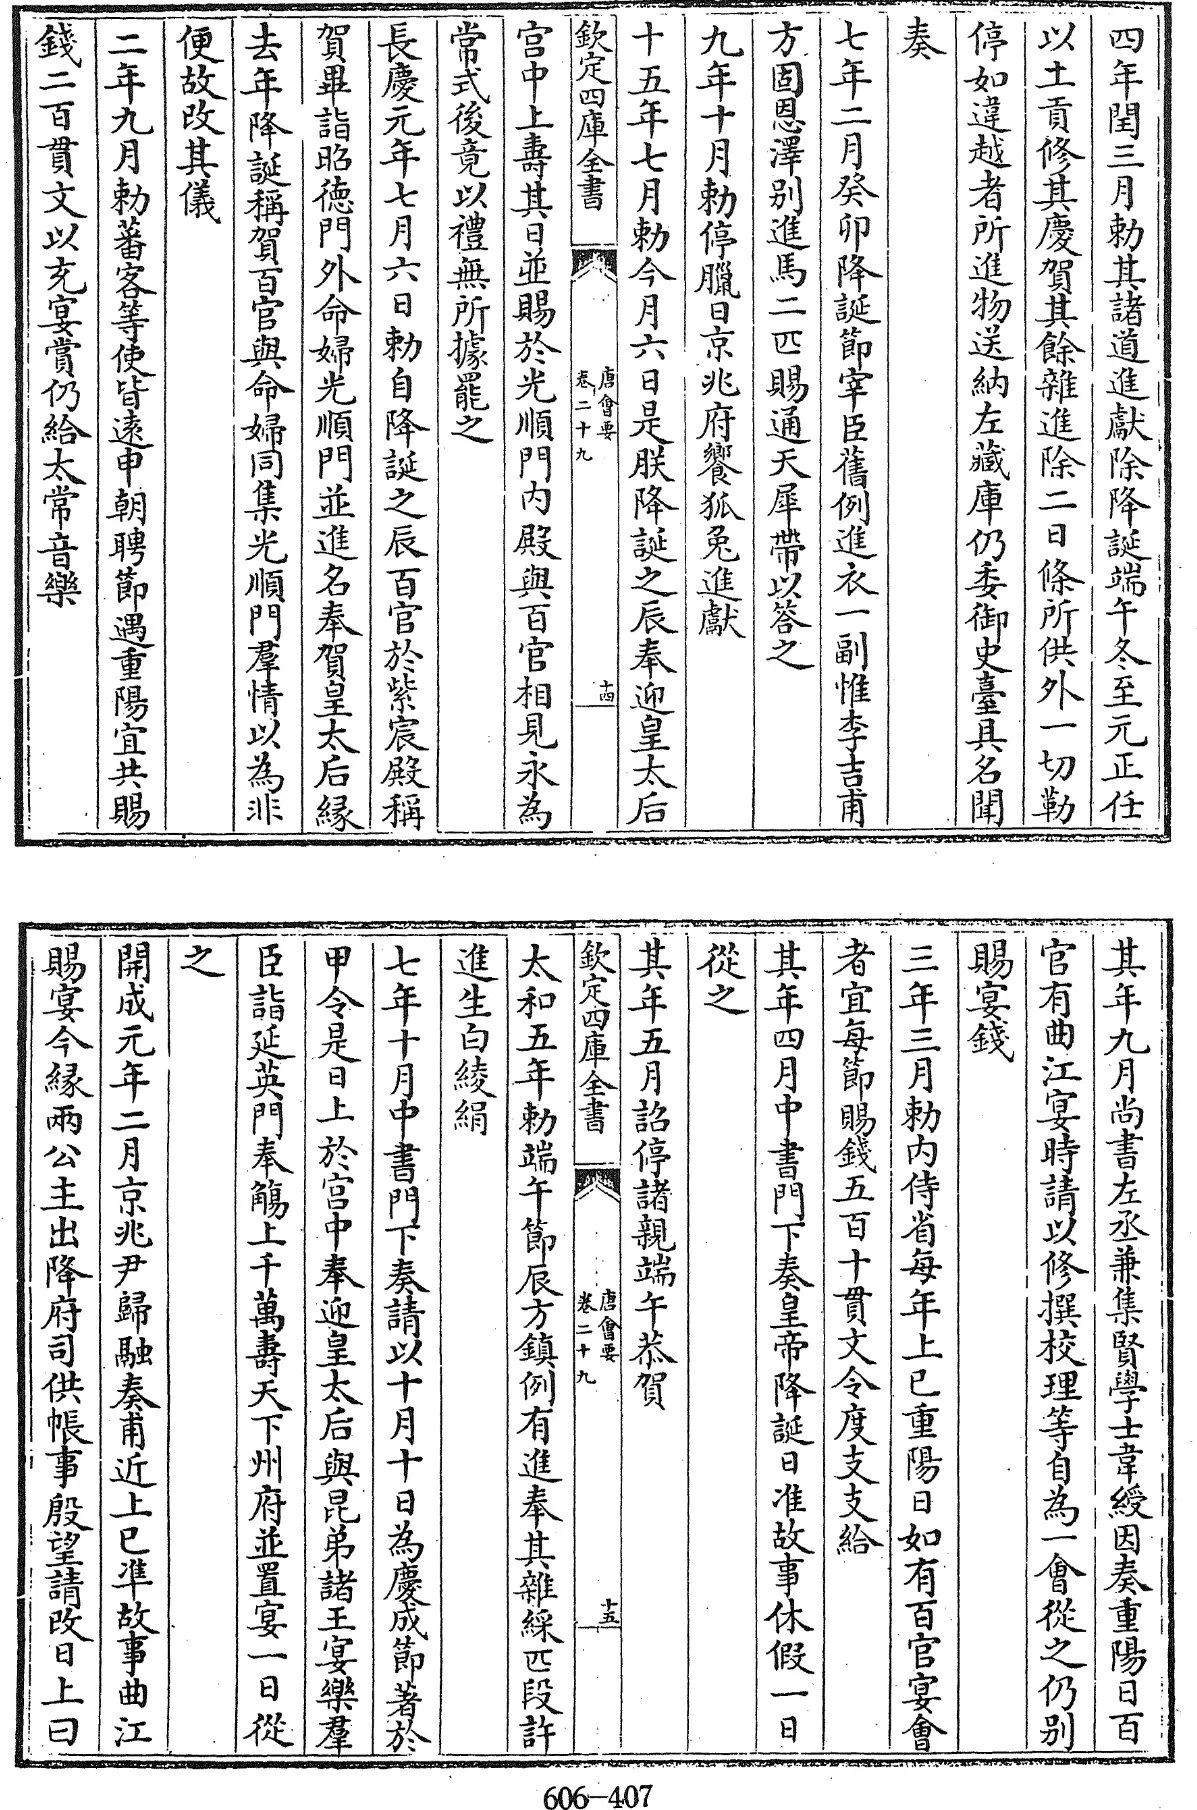 四年閏三月勅其諸道進獻除降誕端午冬至元正任
以土貢修其慶賀其餘雜進除二日條所供外一切勒
停如違越者所進物送納左藏庫仍委御史臺具名聞
奏
七年二月癸卯降誕節宰臣舊例進衣一副惟李吉甫
方固恩澤别進馬二匹賜通天犀帶以答之
九年十月勅停臘日京兆府饗狐兔進獻
十五年七月勅今月六日是朕降誕之辰奉迎皇太后
欽定四庫全書
唐會要
卷二十九
十四
宫中上壽其日並賜於光順門内殿與百官相見永為
常式後竟以禮無所據罷之
長慶元年七月六日勅自降誕之辰百官於紫宸殿稱
賀畢詣昭德門外命婦光順門並進名奉賀皇太后縁
去年降誕稱賀百官與命婦同集光順門羣情以為非
便故改其儀
二年九月勅蕃客等使皆遠申朝聘節遇重陽宜共賜
錢二百貫文以充宴賞仍給太常音樂
其年九月尚書左丞兼集賢學士韋綬因奏重陽日百
官有曲江宴時請以修撰校理等自為一會從之仍别
賜宴錢
三年三月勅内侍省每年上巳重陽日如有百官宴會
者宜每節賜錢五百十貫文令度支支給
其年四月中書門下奏皇帝降誕日准故事休假一日
從之
其年五月詔停諸親端午恭賀
欽定四庫全書
唐會要
卷二十九
十五
太和五年勅端午節辰方鎮例有進奉其雜綵匹段許
進生白綾絹
七年十月中書門下奏請以十月十日為慶成節著於
甲令是日上於宫中奉迎皇太后與昆弟諸王宴樂羣
臣詣延英門奉觴上千萬壽天下州府並置宴一日從
之
開成元年二月京兆尹歸融奏甫近上巳準故事曲江
賜宴今縁兩公主出降府司供帳事殷望請改日上曰
606-407